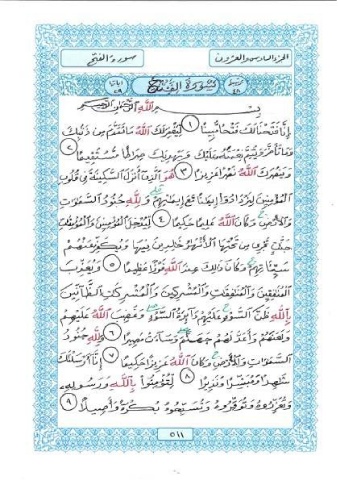 الجزء السادس والعشرون
سورة الفتح
ترتيبها ٤٨
سُورَةُ الفَتْحِ
آياتها ٢٩
بِسْمِ اللَّهِ الرَّحْمَٰنِ الرَّحِيمِ
إِنَّا فَتَحْنَا لَكَ فَتْحًا مُّبِينًا ١ لِّيَغْفِرَ لَكَ اللَّهُ مَا تَقَدَّمَ مِن ذَنبِكَ
وَمَا تَأَخَّرَ وَيُتِمَّ نِعْمَتَهُ عَلَيْكَ وَيَهْدِيَكَ صِرَاطًا مُّسْتَقِيمًا ٢
وَيَنصُرَكَ اللَّهُ نَصْرًا عَزِيزًا ٣ هُوَ الَّذِي أَنزَلَ السَّكِينَةَ فِي قُلُوبِ
الْمُؤْمِنِينَ لِيَزْدَادُوا إِيمَانًا مَّعَ إِيمَانِهِمْ وَلِلَّهِ جُنُودُ السَّمَٰوَٰتِ
وَالْأَرْضِ وَكَانَ اللَّهُ عَلِيمًا حَكِيمًا ٤ لِّيُدْخِلَ الْمُؤْمِنِينَ وَالْمُؤْمِنَٰتِ
جَنَّٰتٍ تَجْرِي مِن تَحْتِهَا الْأَنْهَٰرُ خَٰلِدِينَ فِيهَا وَيُكَفِّرَ عَنْهُمْ
سَيِّئَاتِهِمْ وَكَانَ ذَٰلِكَ عِندَ اللَّهِ فَوْزًا عَظِيمًا ٥ وَيُعَذِّبَ
الْمُنَٰفِقِينَ وَالْمُنَٰفِقَٰتِ وَالْمُشْرِكِينَ وَالْمُشْرِكَٰتِ الظَّانِّينَ
بِاللَّهِ ظَنَّ السَّوْءِ عَلَيْهِمْ دَائِرَةُ السَّوْءِ وَغَضِبَ اللَّهُ عَلَيْهِمْ
وَلَعَنَهُمْ وَأَعَدَّ لَهُمْ جَهَنَّمَ وَسَاءَتْ مَصِيرًا ٦ وَلِلَّهِ جُنُودُ
السَّمَٰوَٰتِ وَالْأَرْضِ وَكَانَ اللَّهُ عَزِيزًا حَكِيمًا ٧ إِنَّا أَرْسَلْنَٰكَ
شَٰهِدًا وَمُبَشِّرًا وَنَذِيرًا ٨ لِّتُؤْمِنُوا بِاللَّهِ وَرَسُولِهِ
وَتُعَزِّرُوهُ وَتُوَقِّرُوهُ وَتُسَبِّحُوهُ بُكْرَةً وَأَصِيلًا ٩
٥١١